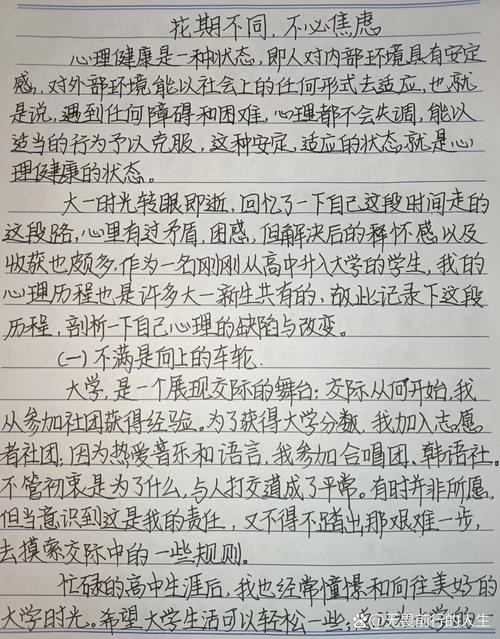 花期不同,不必焦虑
心理健康是一种状态,即人对内部环境具有安定
感,对外部环境能以社会上的任何形式去适应,也就
是说,遇到任何障碍和困难,心理都不会失调,能以
适当的行为予以克服,这种安定,适应的状态就是心
理健康的状态。
大一时光转眼即逝,回忆了一下自己这段时间走的
这段路,心里有过矛盾,困惑,但解决后的释怀感以及
收获也颇多.作为一名刚刚从高中升入大学的学生,我的
心理历程也是许多大一新生共有的,故此记录下这段
历程,剖析一下自己心理的缺陷与改变。
(一)不满是向上的车轮.
大学,是一个展现交际的舞台;交际从何开始,我
从参加社团获得经验。为了获得大学分数,我加入志愿
者社团;因为热爱音乐和语言,我参加合唱团、韩语社。
不管初衷是为了什么,与人打交道成了平常。有时并非所愿,
但当意识到这是我的责任,又不得不踏出那艰难一步,
去摸索交际中的一些规则.
忙碌的高中生涯后,我也经常憧憬和向往美好的
大学时光。希望大学生活可以轻松一些;
@无畏前行的人生